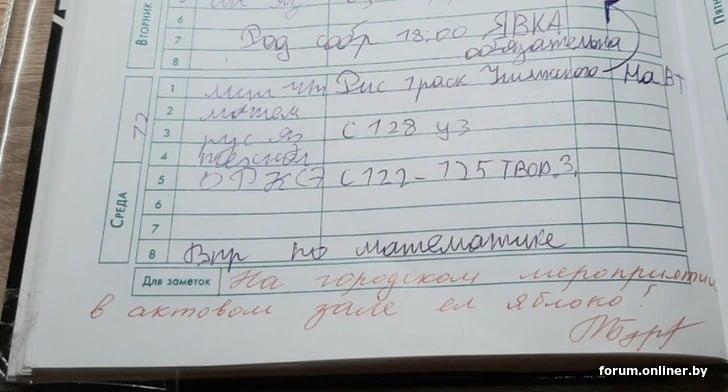 Вторник
6
7 Род собр 18:00 ЯВКА
обязательна
8
Среда
1 лит чт Рис траск На Вт
2 матем
3 рус яз с 128 у 3
4
5 ОРКСЭ с 122-125 ТВОР.З.
6
7
8 Впр по математике
Для заметок На городском мероприятии
в актовом зале ел яблоко!
forum.onliner.by